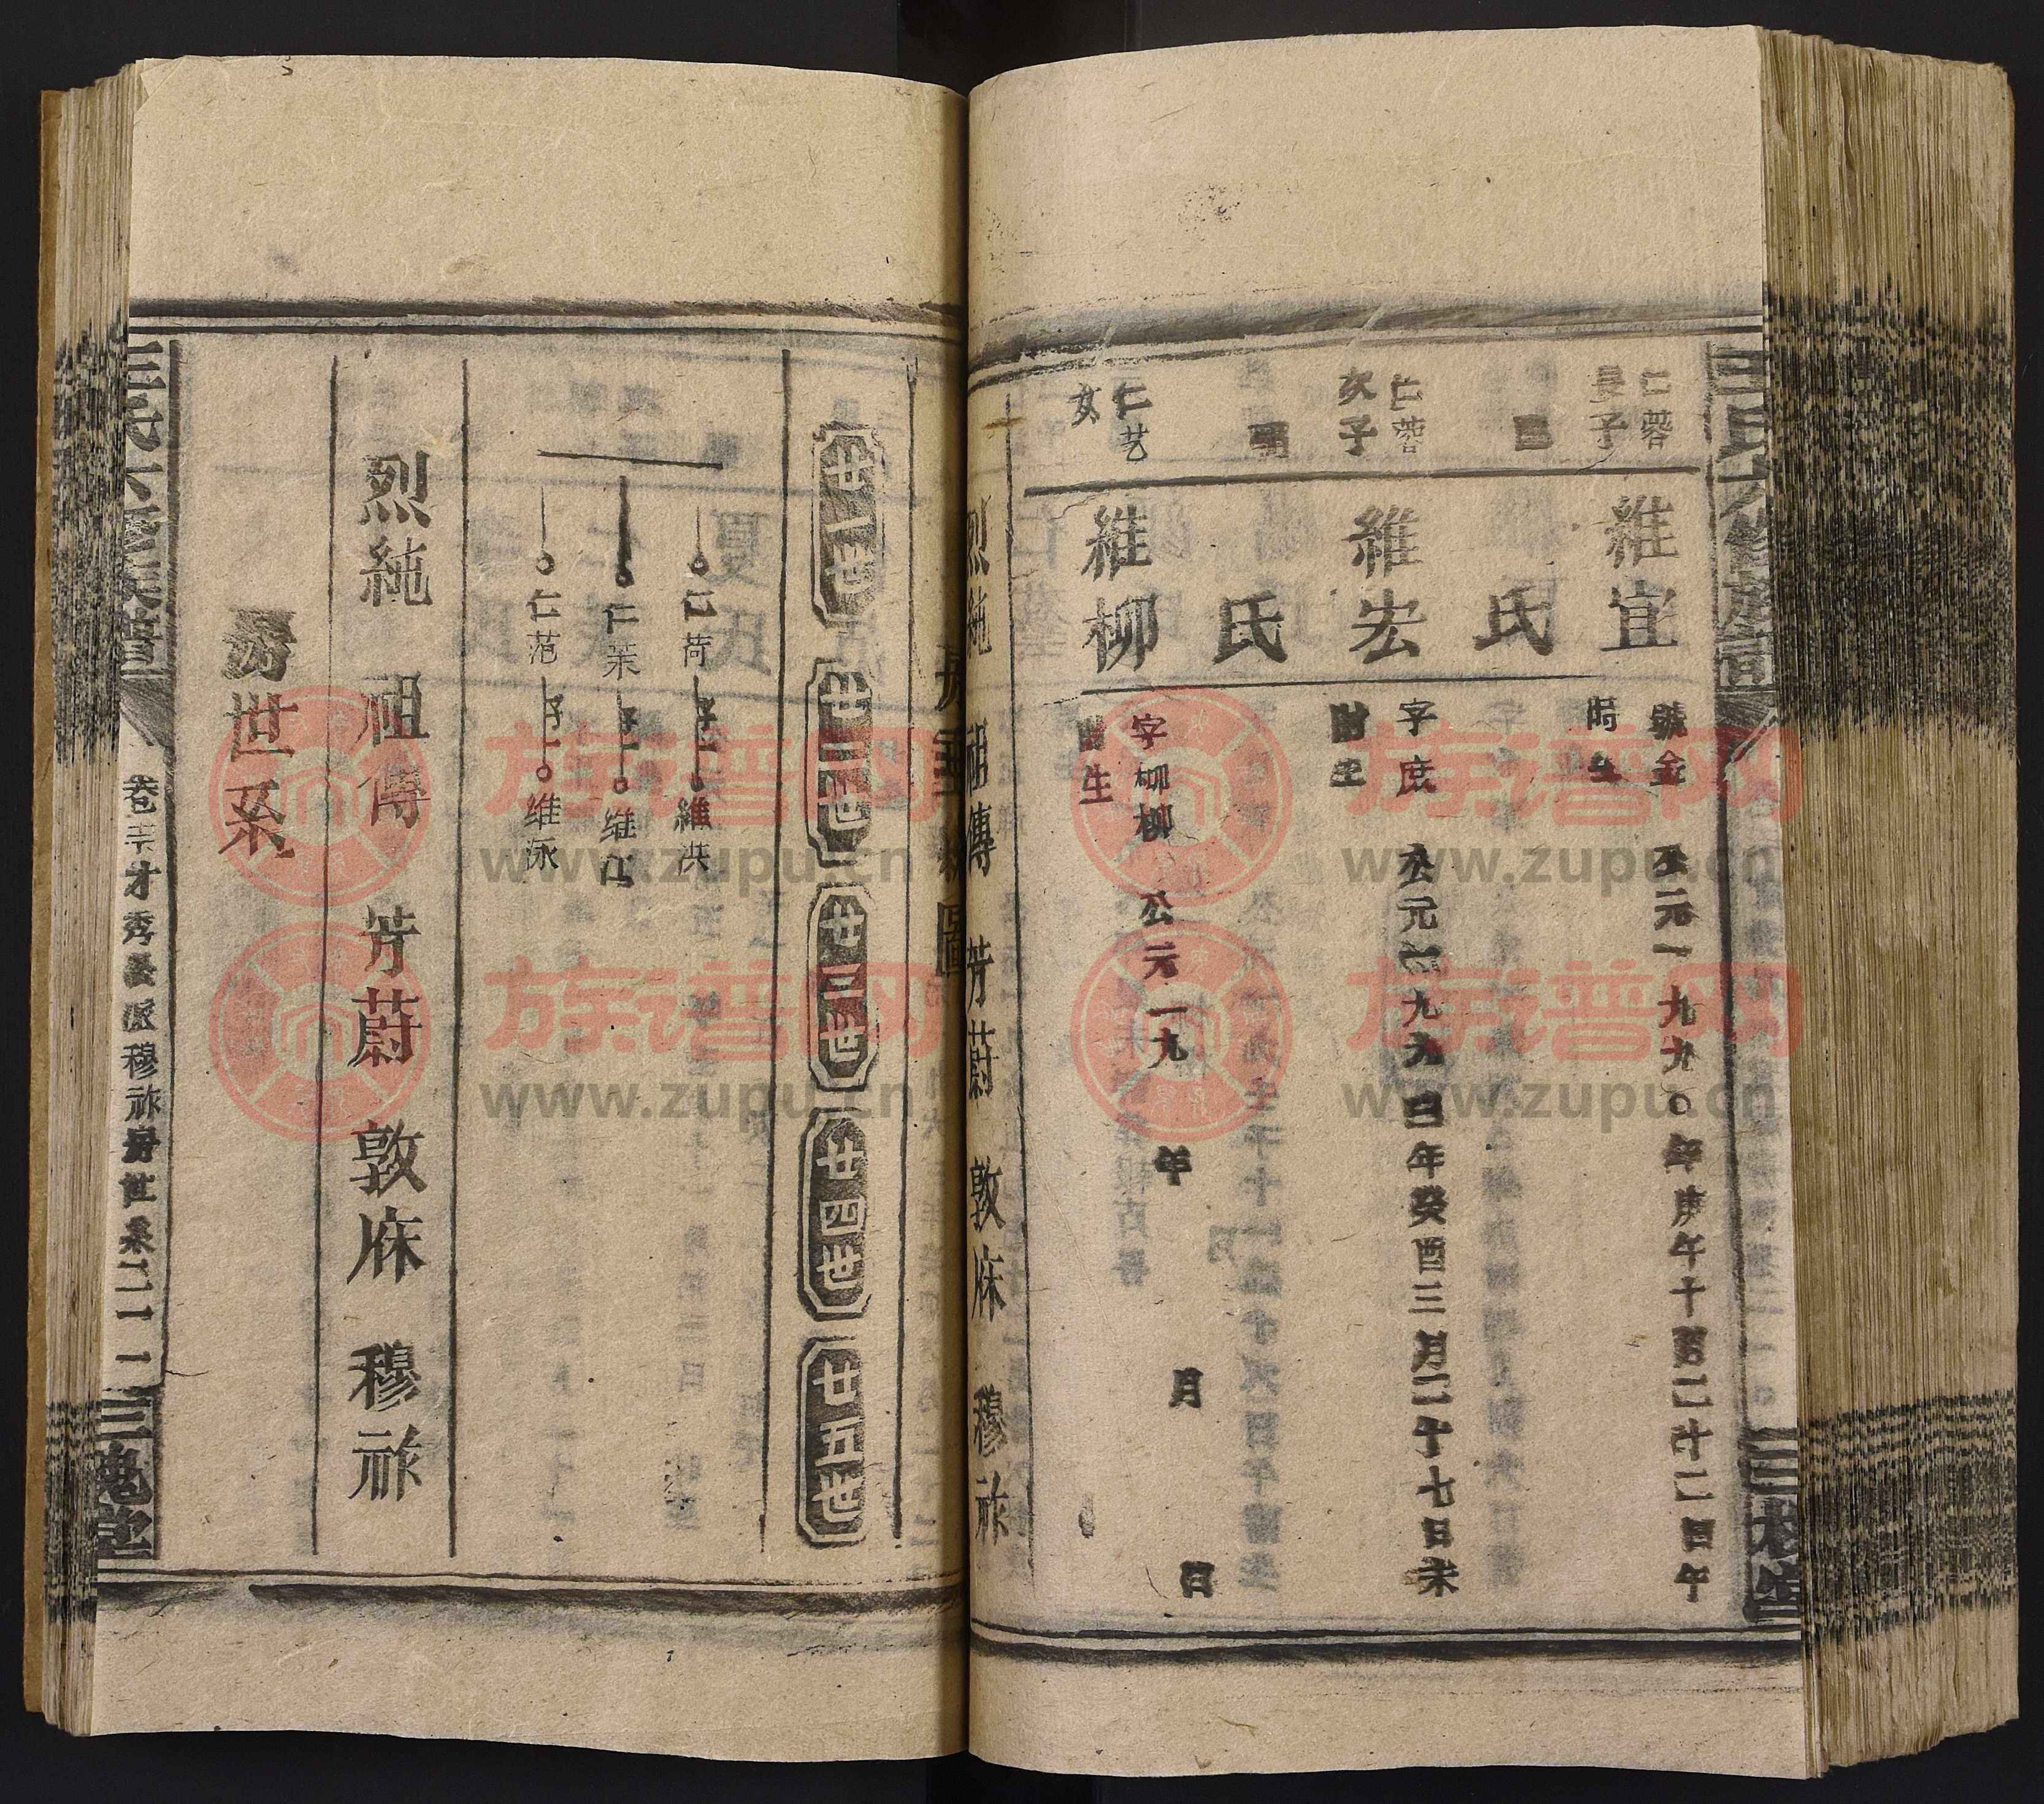 王氏六修族譜
三槐堂
仁蓉
長子
維宜
號金 公元一九九〇年庚午十二月二十二日午
時生
氏
仁蓉
次子
維宏
字庶 公元一九九三年癸酉三月二十七日未
時生
氏
仁艺
女
維柳
字柳柳 公元一九 年 月 日
時生
烈純 祖傳 芳蔚 敦庥 穆祚
房世系圖
廿一世
廿二世
廿三世
廿四世
廿五世
仁荷 子一 維洪
仁茉 子一 维江
仁范 子一 维泳
烈純 祖傳 芳蔚 敦庥 穆祚
房世系
王氏六修族譜
穆祚房世系
三槐堂
族谱网
www.zupu.cn
族谱网
www.zupu.cn
族谱网
www.zupu.cn
族谱网
www.zupu.cn